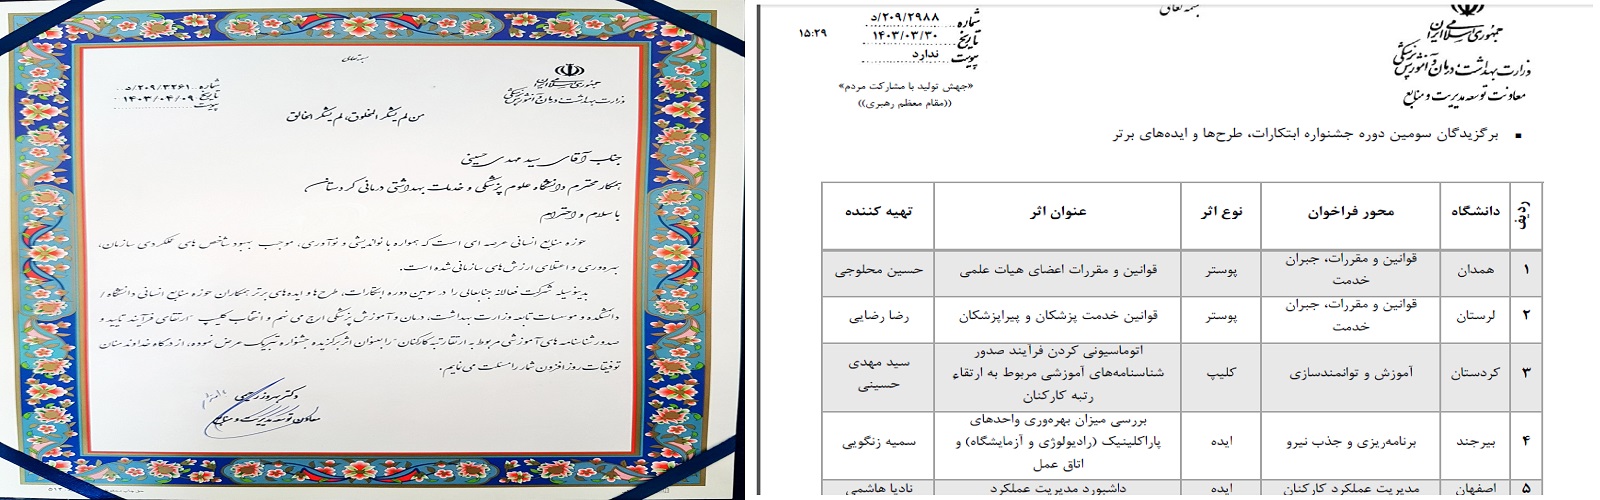 بسمه تعالی
جمهوری اسلامی ایران
وزارت بهداشت درمان و آموزش پزشکی
شماره ۲۰۹/۳۲۶۱/د
تاریخ ۱۴۰۳/۰۴/۰۹
پیوست
من لم یشکر المخلوق، لم یشکر الخالق
جناب آقای سید مهدی حسینی
همکار محترم دانشگاه علوم پزشکی و خدمات بهداشتی درمانی کردستان
با سلام و احترام
حوزه منابع انسانی عرصه ای است که همواره با نواندیشی و نوآوری، موجب بهبود شاخص های عملکردی سازمان،
بهره‌وری و اعتلای ارزش های سازمانی شده است.
بدینوسیله شرکت فعالانه جنابعالی را در سومین دوره ابتکارات، طرح‌ها و ایده‌های برتر همکاران حوزه منابع انسانی دانشگاه /
دانشکده و موسسات تابعه وزارت بهداشت، درمان و آموزش پزشکی ارج می نهم و انتخاب کلیپ "ارتقای فرآیند تایید و
صدور شناسنامه های آموزشی مربوط به ارتقا رتبه کارکنان" را بعنوان اثر برگزیده جشنواره تبریک عرض نموده، از درگاه خداوند منان
توفیقات روز افزون شما را مسئلت می نمایم.
دکتر بهروز رحیمی
معاون توسعه مدیریت و منابع
بسمه تعالی
جمهوری اسلامی ایران
وزارت بهداشت درمان و آموزش پزشکی
معاونت توسعه مدیریت و منابع
شماره ۲۰۹/۲۹۸۸/د
تاریخ ۱۴۰۳/۰۳/۳۰
۱۵:۲۹
پیوست ندارد
«جهش تولید با مشارکت مردم»
((مقام معظم رهبری))
▪ برگزیدگان سومین دوره جشنواره ابتکارات، طرح‌ها و ایده‌های برتر
ردیف دانشگاه محور فراخوان نوع اثر عنوان اثر تهیه کننده
۱ همدان قوانین و مقررات، جبران خدمت پوستر قوانین و مقررات اعضای هیات علمی حسین محلوجی
۲ لرستان قوانین و مقررات، جبران خدمت پوستر قوانین خدمت پزشکان و پیراپزشکان رضا رضایی
۳ کردستان آموزش و توانمندسازی کلیپ اتوماسیونی کردن فرآیند صدور شناسنامه‌های آموزشی مربوط به ارتقاء رتبه کارکنان سید مهدی حسینی
۴ بیرجند برنامه‌ریزی و جذب نیرو ایده بررسی میزان بهره‌وری واحدهای پاراکلینیک (رادیولوژی و آزمایشگاه) و اتاق عمل سمیه زنگویی
۵ اصفهان مدیریت عملکرد کارکنان ایده داشبورد مدیریت عملکرد نادیا هاشمی